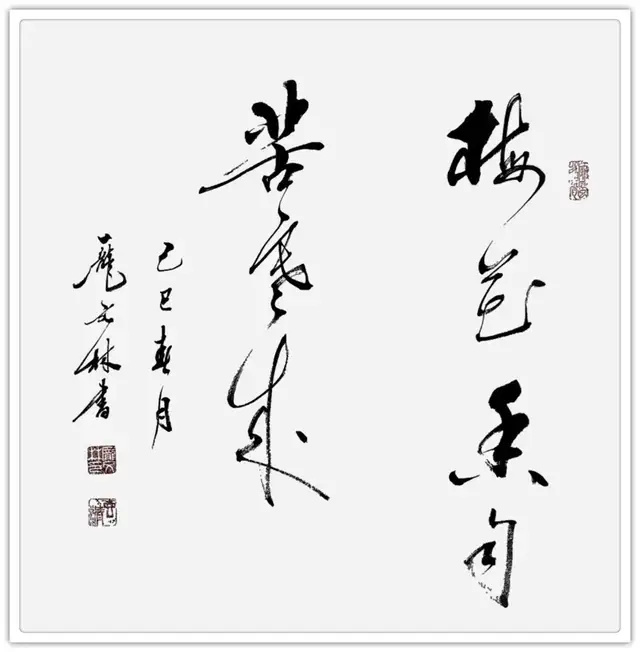 梅花香自
苦寒来
己巳春月
龐文林書